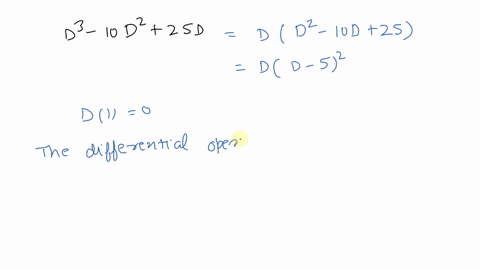 D³ - 10D² + 25D = D(D² - 10D + 25)
= D(D - 5)²
D(1) = 0
The differential oper